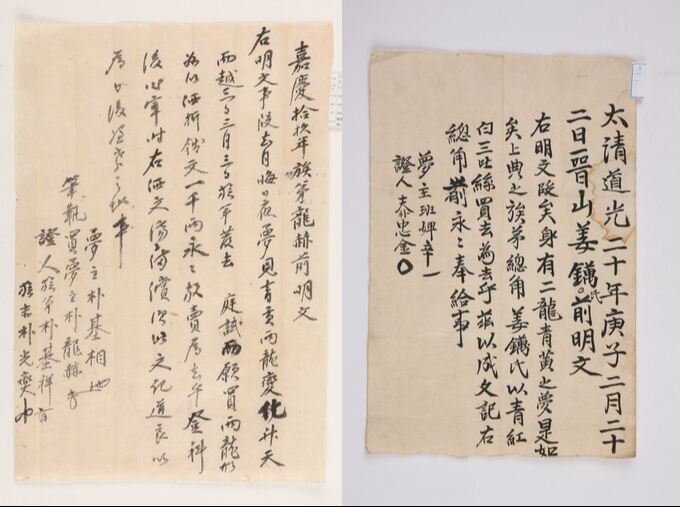 嘉慶拾玖年 族弟龍赫前明文
右明文事段去月晦日夜夢見青黃兩龍變化升天
而越三日三月三日族弟發去 庭試而願買兩龍形
故以価折錢文一千兩永〻放賣爲去乎登科
後 右価文 備償次以文記道良以
爲 後 事
夢主朴基相
筆執買夢主朴龍赫
證人族弟朴基祥
朴光燮
太清道光二十年庚子二月二十
二日晋山姜鏋氏前明文
右明文段矣身有二龍青黃之夢是如
矣上典之族弟總角姜鏋氏以青紅
白三吐絲買去爲去乎茲以成文記右
總角前永〻奉給事
夢主班婢辛一
證人泰忠金〇